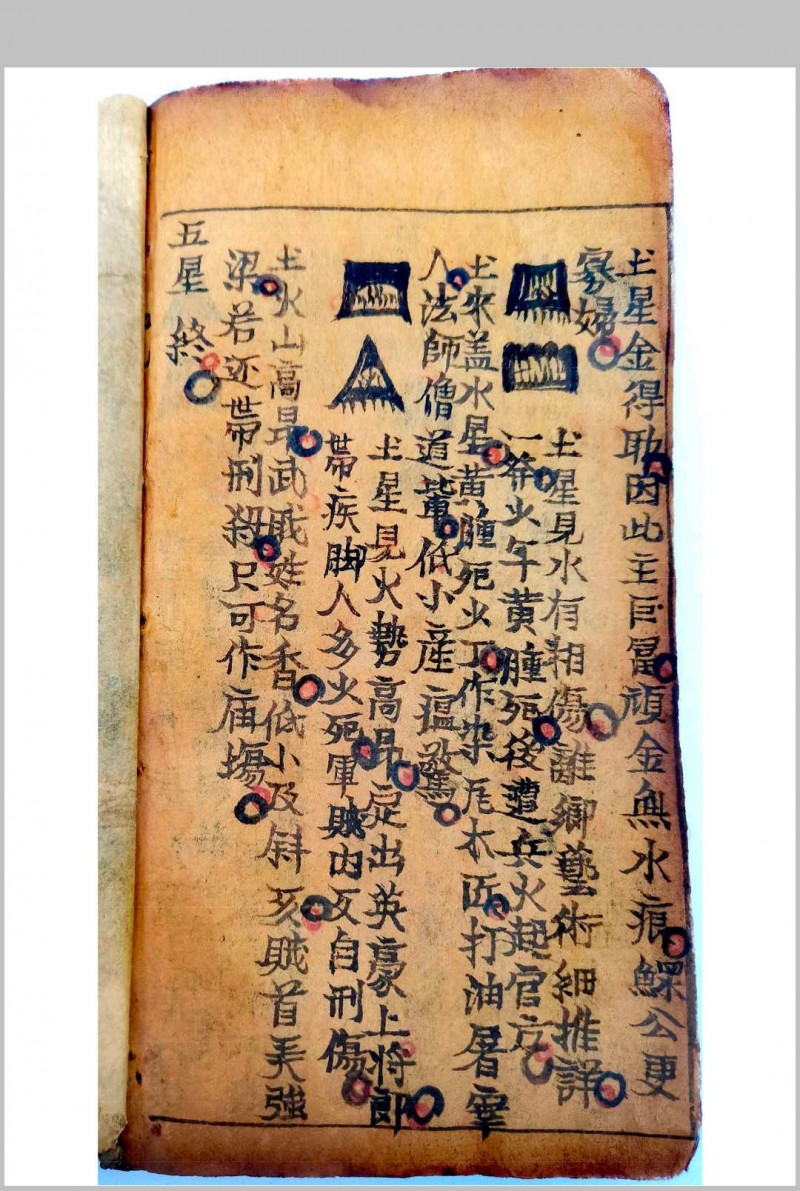 土星金得助因此主巨冨頑金無水痕鰥公更
寡婦
土星見水有相傷離鄉藝術細推詳
一発火年黄腫死後遭兵火起官方
土來盖水星黄腫死少丁作染瓦木匠打油屠宰
人法師僧道輩低小産瘟驚
土星見火勢高昂定出英豪上将郎
帶疾脚人多火死軍賊内反自刑傷
土火山高昂武職姓名香低小及斜亥賊首美強
梁若还帶刑殺只可作庙塲
五星終